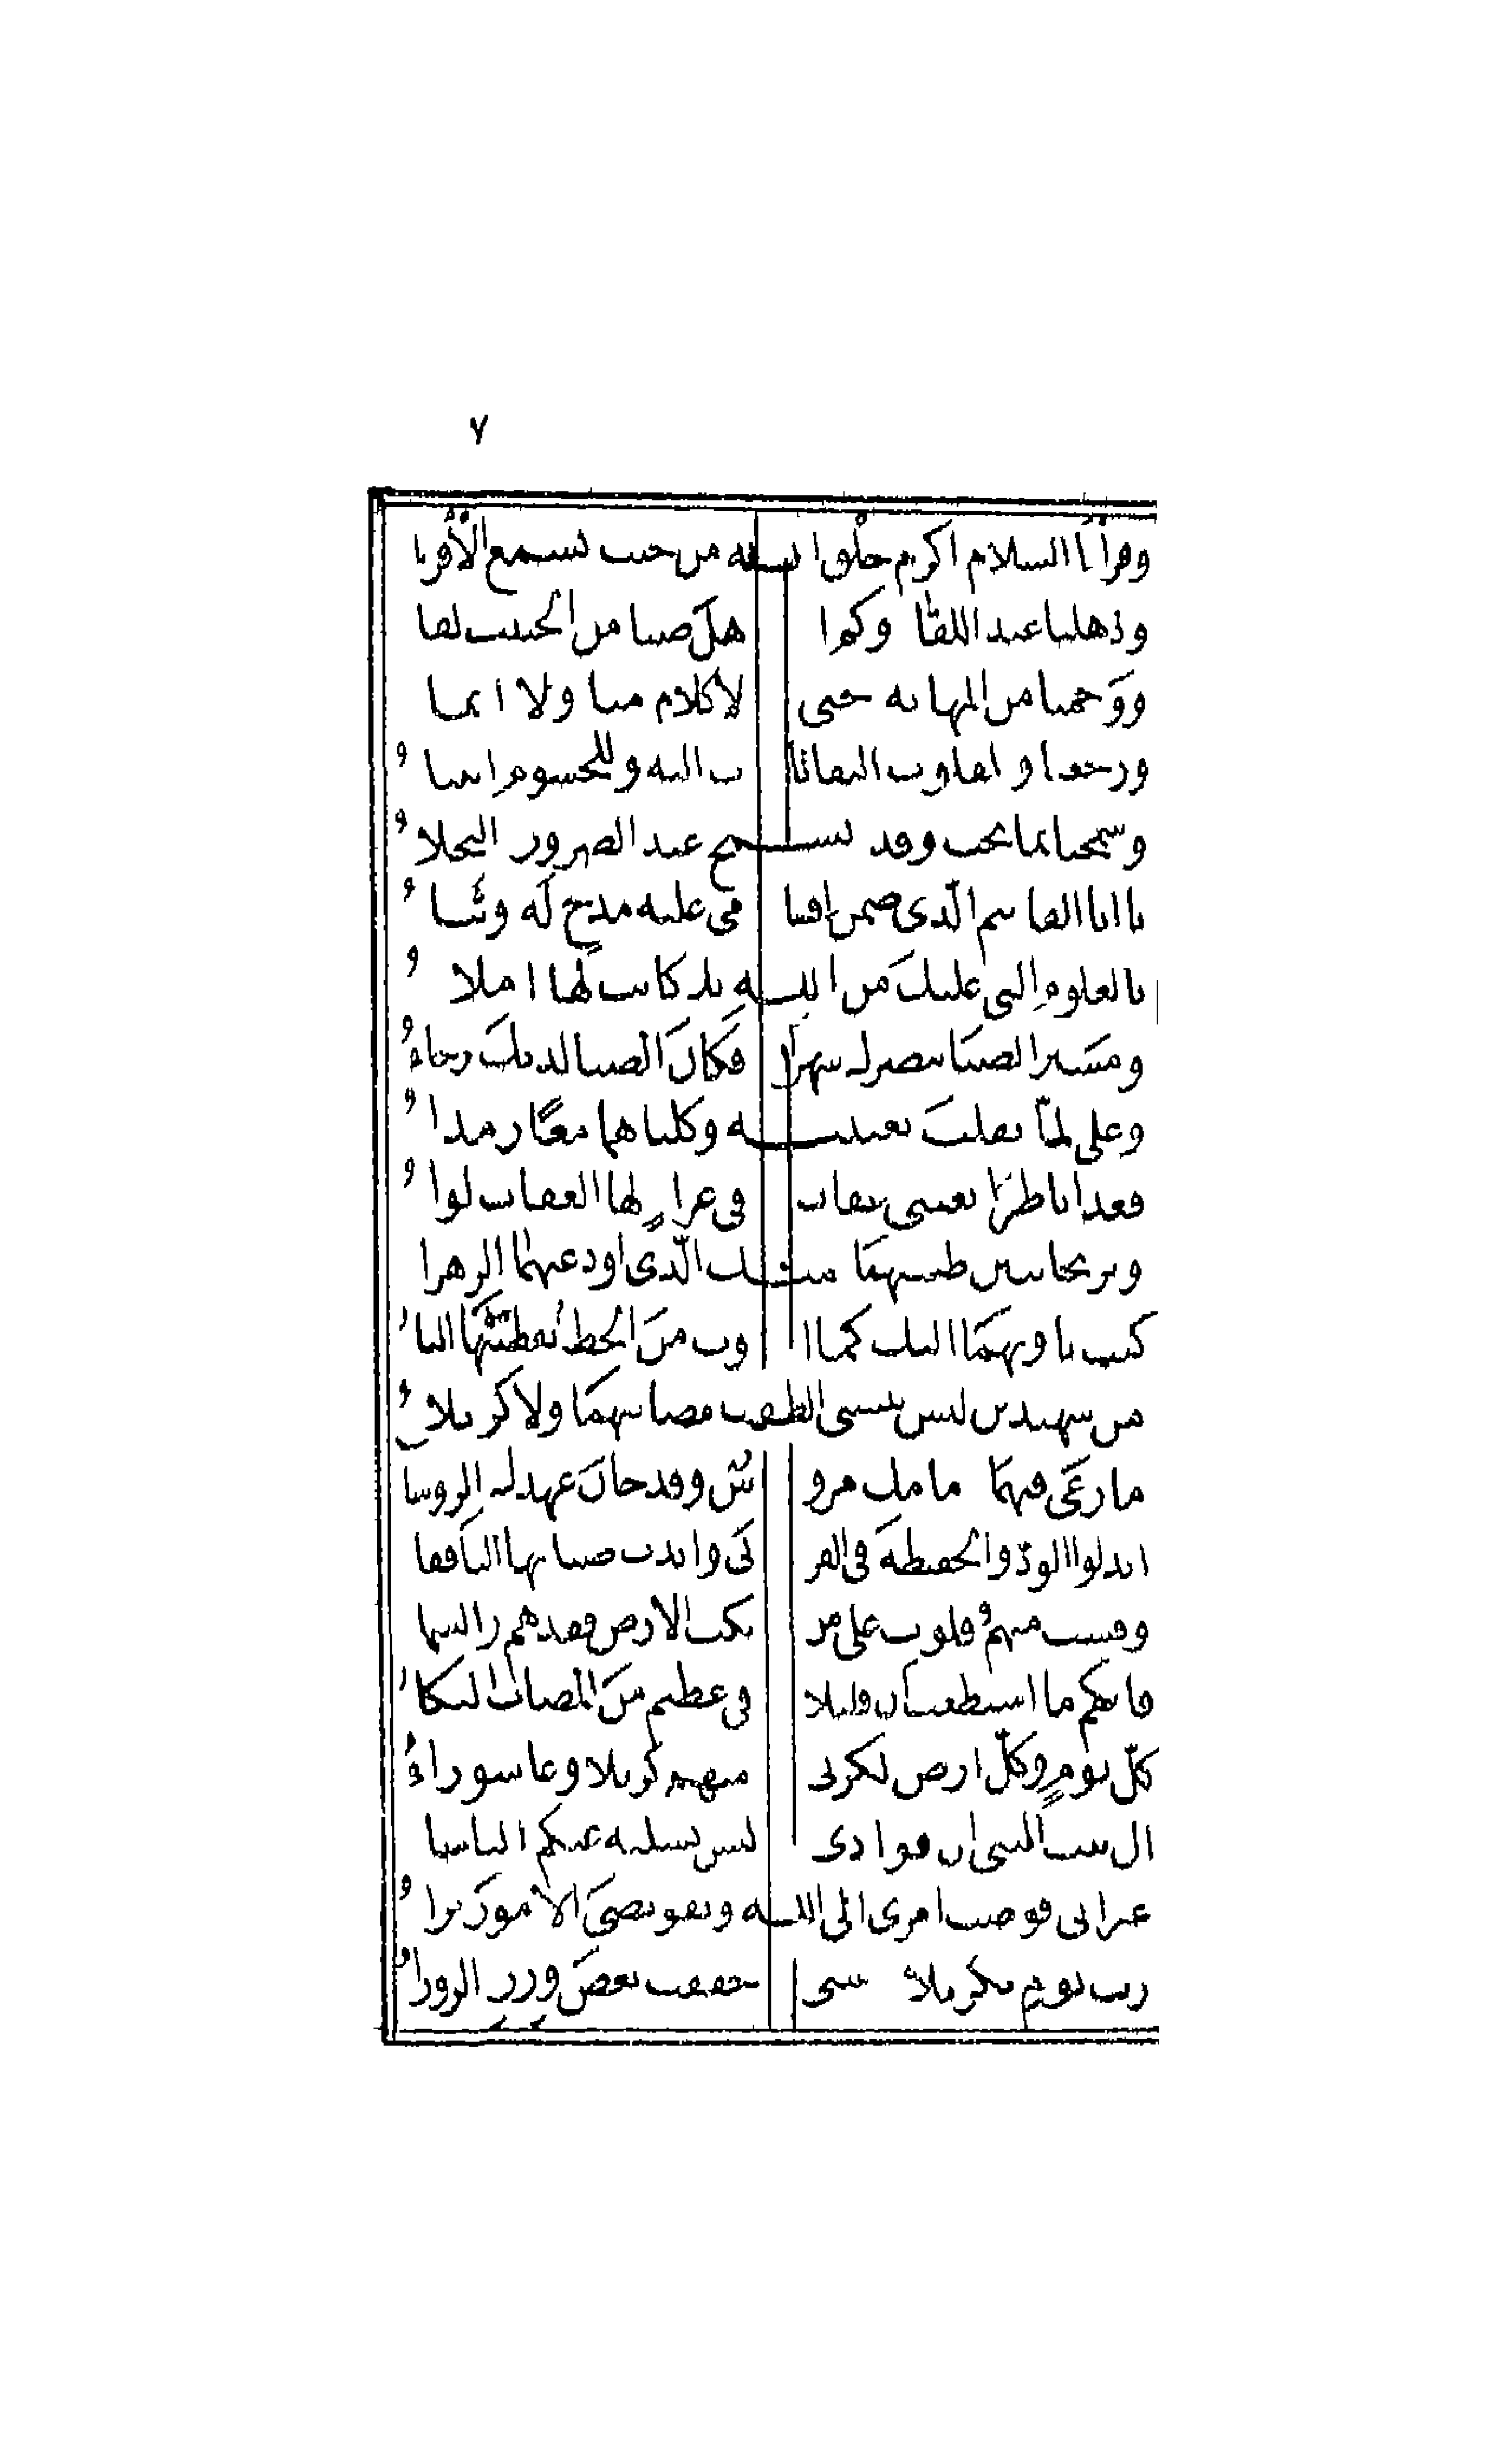 ٧
وقرأنا السلام اكرم خلق الله من حيث يسمع الأقرا
وذهلنا عند اللقا وكم ا هل صبا من الحبيب لقا
ووجمنا من المهابه حتى لا كلام منا ولا ايما
ورجعنا و لقلوب التفاتا ت اليه وللجسوم انثناء
وسمحنا بما نحب وقد يسمح عند الضرور البخلاء
يا ابا القاسم الّذى ضمن اقسا مى عليه مدح له وثناء
بالعلوم التى عليكَ من الله بلا كاتب لها املاء
ومسير الصبا بنصرك شهرا فكان الصبا لديك رخاءُ
وعلى لمّا تفلت بعينيه وكلتاهما معًا رمداء
فغدا ناظرًا بعينى عقاب فى غزاةٍ لها العقاب لواء
وبريحانتين طيبهما منك الّذى اودعتهما الزهرا
كنت تاويهما اليك كما ا وت من الخط نقطتيها الياء
من شهيدين ليس ينسى الطف مصابيهما ولا كربلاء
ما رعى فيهما ذمامك مرو س وقد خان عهدك الروسا
ابدلوا الودّ والحفيظه فى القر بى وابدت ضبابها النافقا
وقست منهم قلوب على من بكت الارض فقدهم والسما
فابكهم ما استطعت ان قليلا فى عظيم من المصاب البكاء
كلّ يومٍ وكلّ ارض لكربى منهم كربلا وعاشوراءُ
ال بيت النبى ان فوادى ليس يسليه عنكم التاسا
غير انى فوضت امرى الى الله وتفويضى الأمور براء
رب يوم بكربلاء مسى خففت بعض وزره الزوراء